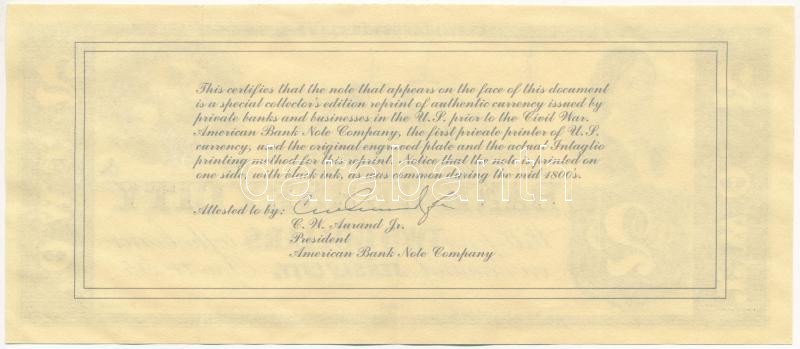 This certifies that the note that appears on the face of this document
is a special collector's edition reprint of authentic currency issued by
private banks and businesses in the U.S. prior to the Civil War.
American Bank Note Company, the first private printer of U.S.
currency, used the original engraved plate and the actual Intaglio
printing method for this reprint. Notice that the note is printed on
one side, with black ink, as was common during the mid 1800's.
Attested to by:
C. W. Aurand Jr.
President
American Bank Note Company
darabanth